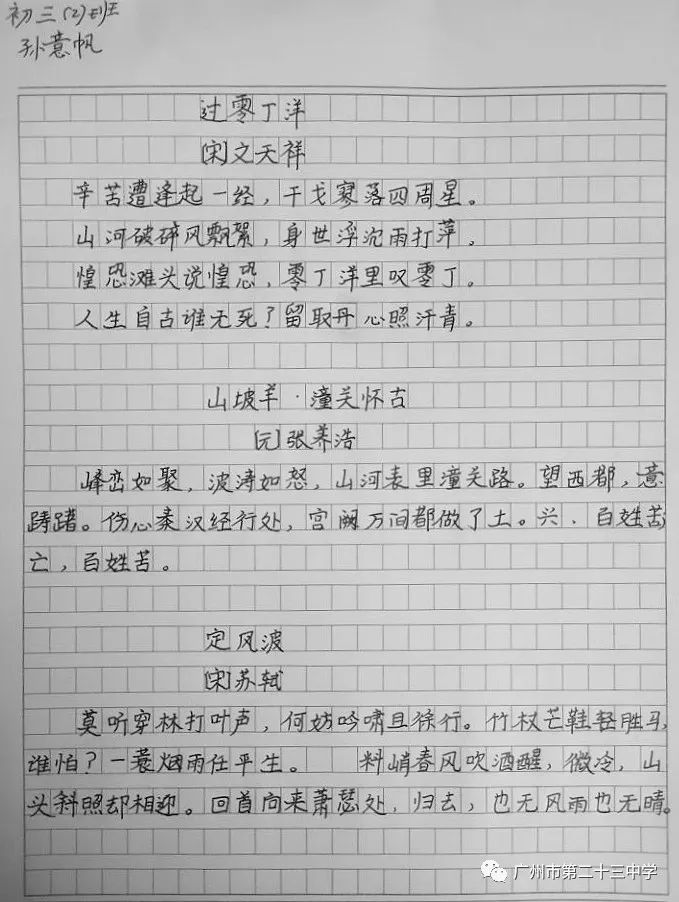 初三(2)班
孙意帆
过零丁洋
[宋]文天祥
辛苦遭逢起一经，干戈寥落四周星。
山河破碎风飘絮，身世浮沉雨打萍。
惶恐滩头说惶恐，零丁洋里叹零丁。
人生自古谁无死？留取丹心照汗青。
山坡羊·潼关怀古
[元]张养浩
峰峦如聚，波涛如怒，山河表里潼关路。望西都，意
踌躇。伤心秦汉经行处，宫阙万间都做了土。兴，百姓苦
亡，百姓苦。
定风波
[宋]苏轼
莫听穿林打叶声，何妨吟啸且徐行。竹杖芒鞋轻胜马，
谁怕？一蓑烟雨任平生。 料峭春风吹酒醒，微冷，山
头斜照却相迎。回首向来萧瑟处，归去，也无风雨也无晴。
广州市第二十三中学